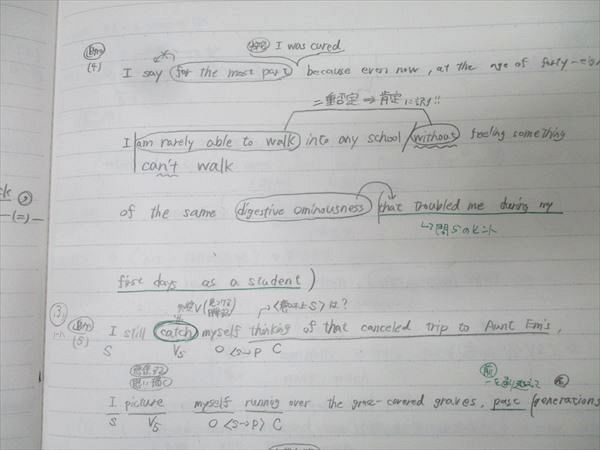 I was cured
(4) I say (for the most part) because even now, at the age of forty-eigh
二重否定 ⇒ 肯定に訳!!
I am rarely able to walk into any school without feeling something
can't walk
of the same digestive ominousness that troubled me during my
問5のヒント
first days as a student)
V
(5) I still catch myself thinking of that canceled trip to Aunt Em's,
S V5 O <S→P> C
I picture myself running over the grass-covered graves, past generations
S V5 O <S→P> C